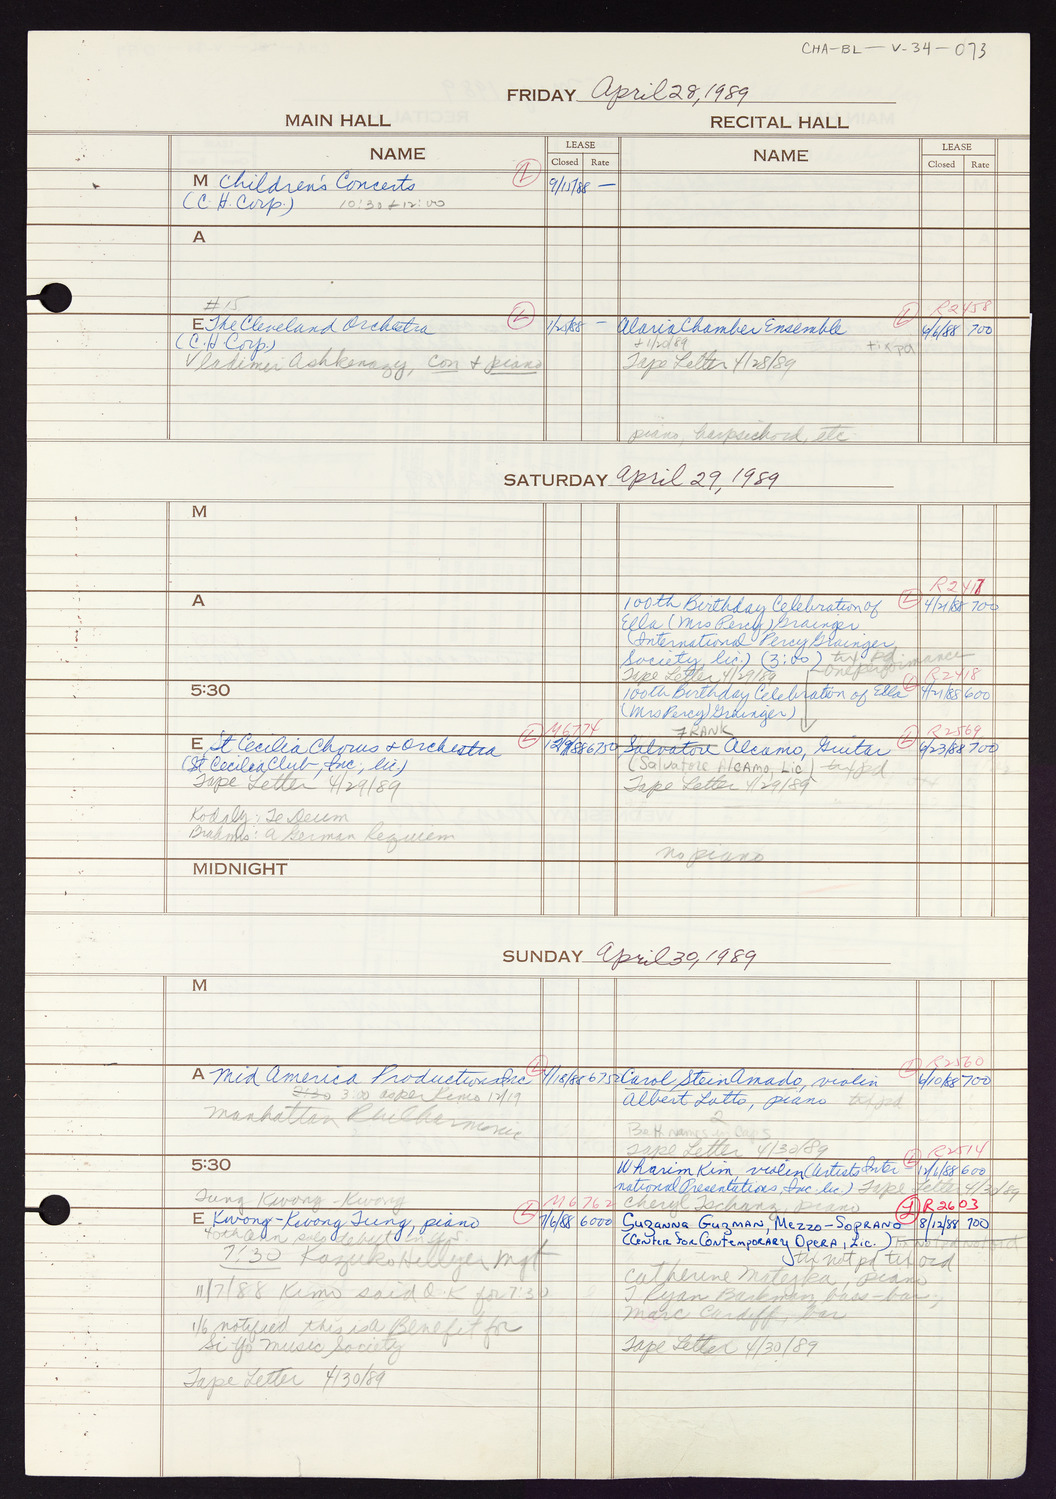 CHA-BL-V-34-073
FRIDAY April 28, 1989
MAIN HALL
RECITAL HALL
NAME
LEASE
Closed Rate
NAME
LEASE
Closed Rate
M Children's Concerts L 9/15/88 —
(C.H. Corp.) 10:30 + 12:00
A
#15
E The Cleveland Orchestra L 1/25/88 —
(C.H. Corp.)
Vladimir Ashkenazy, con + piano
R2458
Alaria Chamber Ensemble L 6/6/88 700
+ 1/20/89 tix pd
Tape Letter 4/28/89
piano, harpsichord, etc
SATURDAY April 29, 1989
M
A
R2417
100th Birthday Celebration of L 4/21/88 700
Ella (Mrs Percy) Grainger
(International Percy Grainger
Society, lic.) (3:00) tix pd
Tape Letter 4/29/89 one performance
R2418
5:30
100th Birthday Celebration of Ella L 4/21/88 600
(Mrs Percy) Grainger)
M6774
E St Cecilia Chorus + Orchestra L 12/9/88 6750
(St Cecilia Club, Inc., lic)
Tape Letter 4/29/89
Kodaly: Te Deum
Brahms: A German Requiem
FRANK R2569
Salvatore Alcamo, Guitar L 6/23/88 700
(Salvatore Alcamo, Lic) tix pd
Tape Letter 4/29/89
no piano
MIDNIGHT
SUNDAY April 30, 1989
M
A Mid America Productions Inc L 7/18/88 675
3:00 as per Kimo 12/19
Manhattan Philharmonic
R2560
Carol Stein Amado, violin L 6/10/88 700
Albert Lotto, piano tix pd
2
Both names in Caps
Tape Letter 4/30/89
5:30
R2514
Wharim Kim, violin (Artists Inter L 12/6/88 600
national Presentations, Inc. lic.) Tape Letter 4/30/89
Cheryl Tschanz, piano
Tung Kwong-Kwong
M6762
E Kwong-Kwong Tung, piano L 7/6/88 6000
7:30 Kazuko Hillyer Mgt
11/7/88 Kimo said O.K for 7:30
1/6 notified this is a Benefit for
Si Yo Music Society
Tape Letter 4/30/89
R2603
Suzanna Guzman, Mezzo-Soprano L 8/12/88 700
(Center for Contemporary Opera, Lic.)
tix not pd tix ord
Catherine Matejka, piano
T Ryan Barkman, bass-bar,
Marc Cardiff, bar
Tape Letter 4/30/89